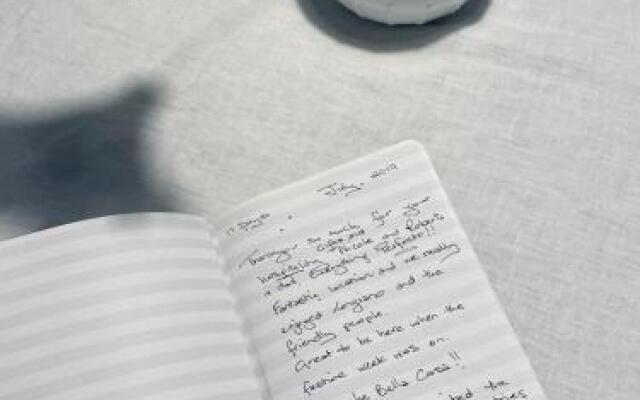 July 2019
Thankyou so much for your
hospitality Nicole and Roberto
+ dad Everything Perfecto!!
Fantastic location and we really
enjoyed Longiano and the
friendly people.
Great to be here when the
festive week was on.
Bella Casa!!
the